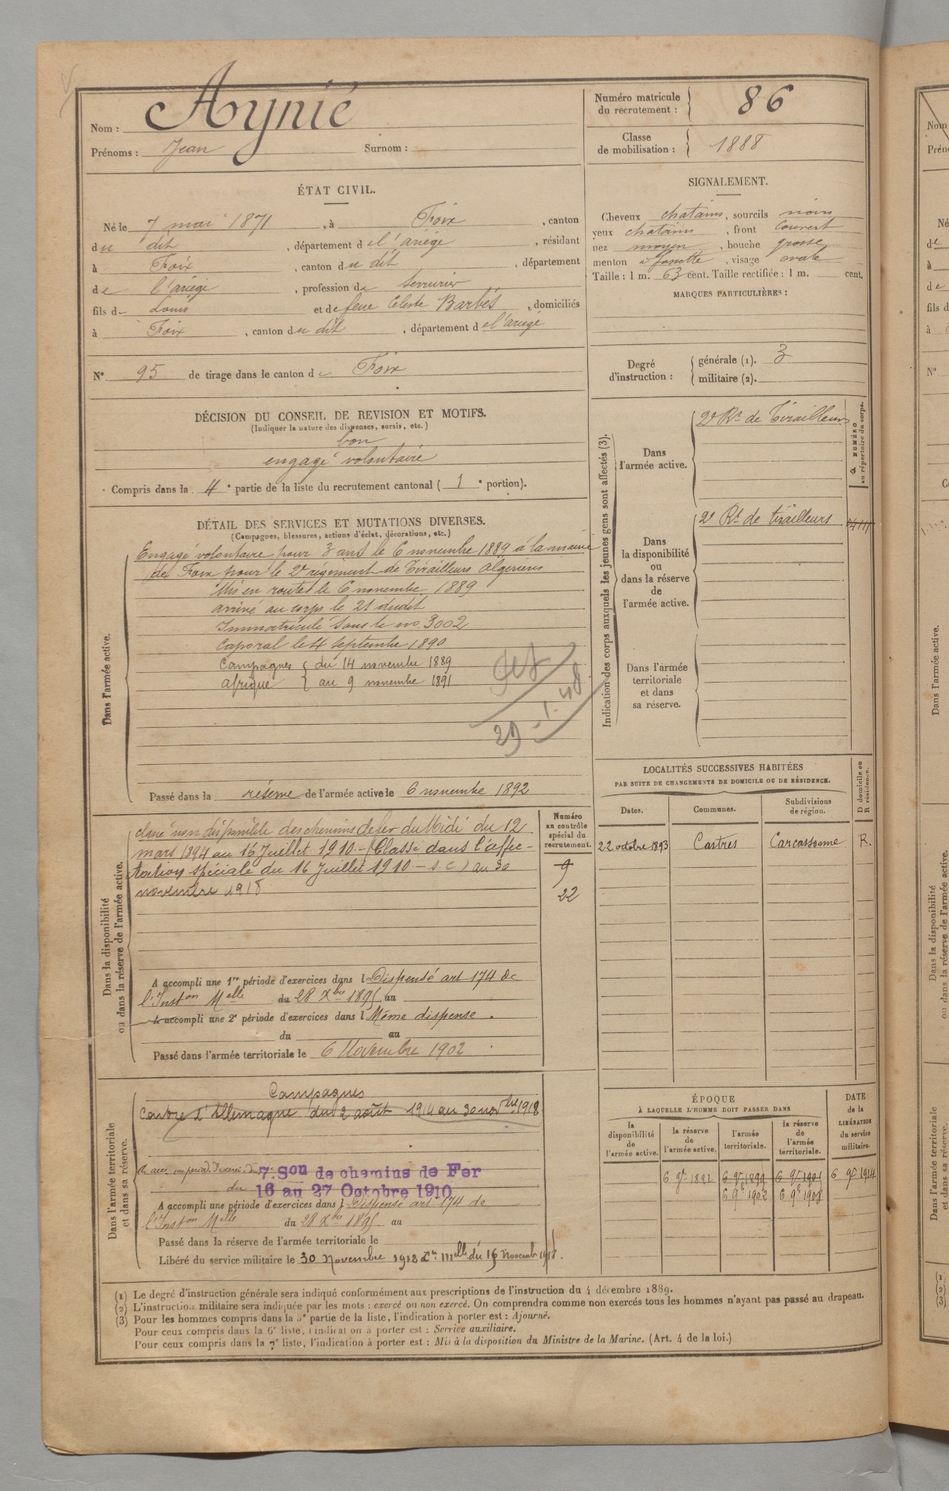 Nom : Aynié
Prénoms : Jean Surnom :
Numéro matricule du recrutement : 86
Classe de mobilisation : 1888
ÉTAT CIVIL.
Né le 7 mai 1871, à Foix, canton
du dit, département de l'ariège, résidant
à Foix, canton du dit, département
de l'ariège, profession de serrurier
fils de Louis et de feue Celeste Barbès, domiciliés
à Foix, canton du dit, département de l'ariège
N° 95 de tirage dans le canton de Foix
SIGNALEMENT.
Cheveux chatains, sourcils noirs
yeux chatains, front couvert
nez moyen, bouche grosse
menton à fossette, visage ovale
Taille : 1 m. 63 cent. Taille rectifiée : 1 m. cent.
MARQUES PARTICULIÈRES :
Degré d'instruction : générale (1). 3
militaire (2).
DÉCISION DU CONSEIL DE REVISION ET MOTIFS.
(Indiquer la nature des dispenses, sursis, etc.)
bon
engagé volontaire
Compris dans la 4e partie de la liste du recrutement cantonal (1e portion).
DÉTAIL DES SERVICES ET MUTATIONS DIVERSES.
(Campagnes, blessures, actions d'éclat, décorations, etc.)
Dans l'armée active.
Engagé volontaire pour 3 ans le 6 novembre 1889 à la mairie
de Foix pour le 2e régiment de Tirailleurs Algeriens
Mis en route le 6 novembre 1889
arrivé au corps le 21 dudit
Immatriculé sous le no 3002
Caporal le 4 septembre 1890
Campagnes { du 14 novembre 1889
afrique { au 9 novembre 1891
29-1-48
Passé dans la réserve de l'armée active le 6 novembre 1892
Indication des corps auxquels les jeunes gens sont affectés (3).
NUMÉRO au répertoire du corps.
Dans l'armée active.
2e Rt de Tirailleurs
Dans la disponibilité ou dans la réserve de l'armée active.
2e Rt de tirailleurs
Dans l'armée territoriale et dans sa réserve.
LOCALITÉS SUCCESSIVES HABITÉES
PAR SUITE DE CHANGEMENTS DE DOMICILE OU DE RÉSIDENCE.
Dates. Communes. Subdivisions de région. D domicile ou R résidence.
22 octobre 1893 Castres Carcassonne R.
Dans la disponibilité ou dans la réserve de l'armée active.
Numéro au contrôle spécial du recrutement.
classé non disponible des chemins de fer du Midi du 12
mars 1894 au 16 Juillet 1910 - (Classé dans l'affec-
tation spéciale du 16 Juillet 1910 - s.c) au 30
novembre 1918
9
22
A accompli une 1re période d'exercices dans l Dispensé art 174 de
l'Inston Melle du 28 Xbre 1895 au
A accompli une 2e période d'exercices dans l Même dispense.
du au
Passé dans l'armée territoriale le 6 Novembre 1902
Dans l'armée territoriale et dans sa réserve.
Campagnes
Contre l'Allemagne du 2 août 1914 au 30 novbre 1918
7. Son de chemins de Fer
du 16 au 27 Octobre 1910
A accompli une période d'exercices dans l Dispensé art 174 de
l'Inston Melle du 28 Xbre 1895 au
Passé dans la réserve de l'armée territoriale le
Libéré du service militaire le 30 Novembre 1918
ÉPOQUE
À LAQUELLE L'HOMME DOIT PASSER DANS
la disponibilité de l'armée active. la réserve de l'armée active. l'armée territoriale. la réserve de l'armée territoriale.
DATE de la LIBÉRATION du service militaire.
6 9e 1892 6 9e 1899 6 9e 1901 6 9e 1914
6 9e 1902 6 9e 1908
(1) Le degré d'instruction générale sera indiqué conformément aux prescriptions de l'instruction du 4 décembre 1889.
(2) L'instruction militaire sera indiquée par les mots : exercé ou non exercé. On comprendra comme non exercés tous les hommes n'ayant pas passé au drapeau.
(3) Pour les hommes compris dans la 3e partie de la liste, l'indication à porter est : Ajourné.
Pour ceux compris dans la 6e liste, l'indication à porter est : Service auxiliaire.
Pour ceux compris dans la 7e liste, l'indication à porter est : Mis à la disposition du Ministre de la Marine. (Art. 4 de la loi.)